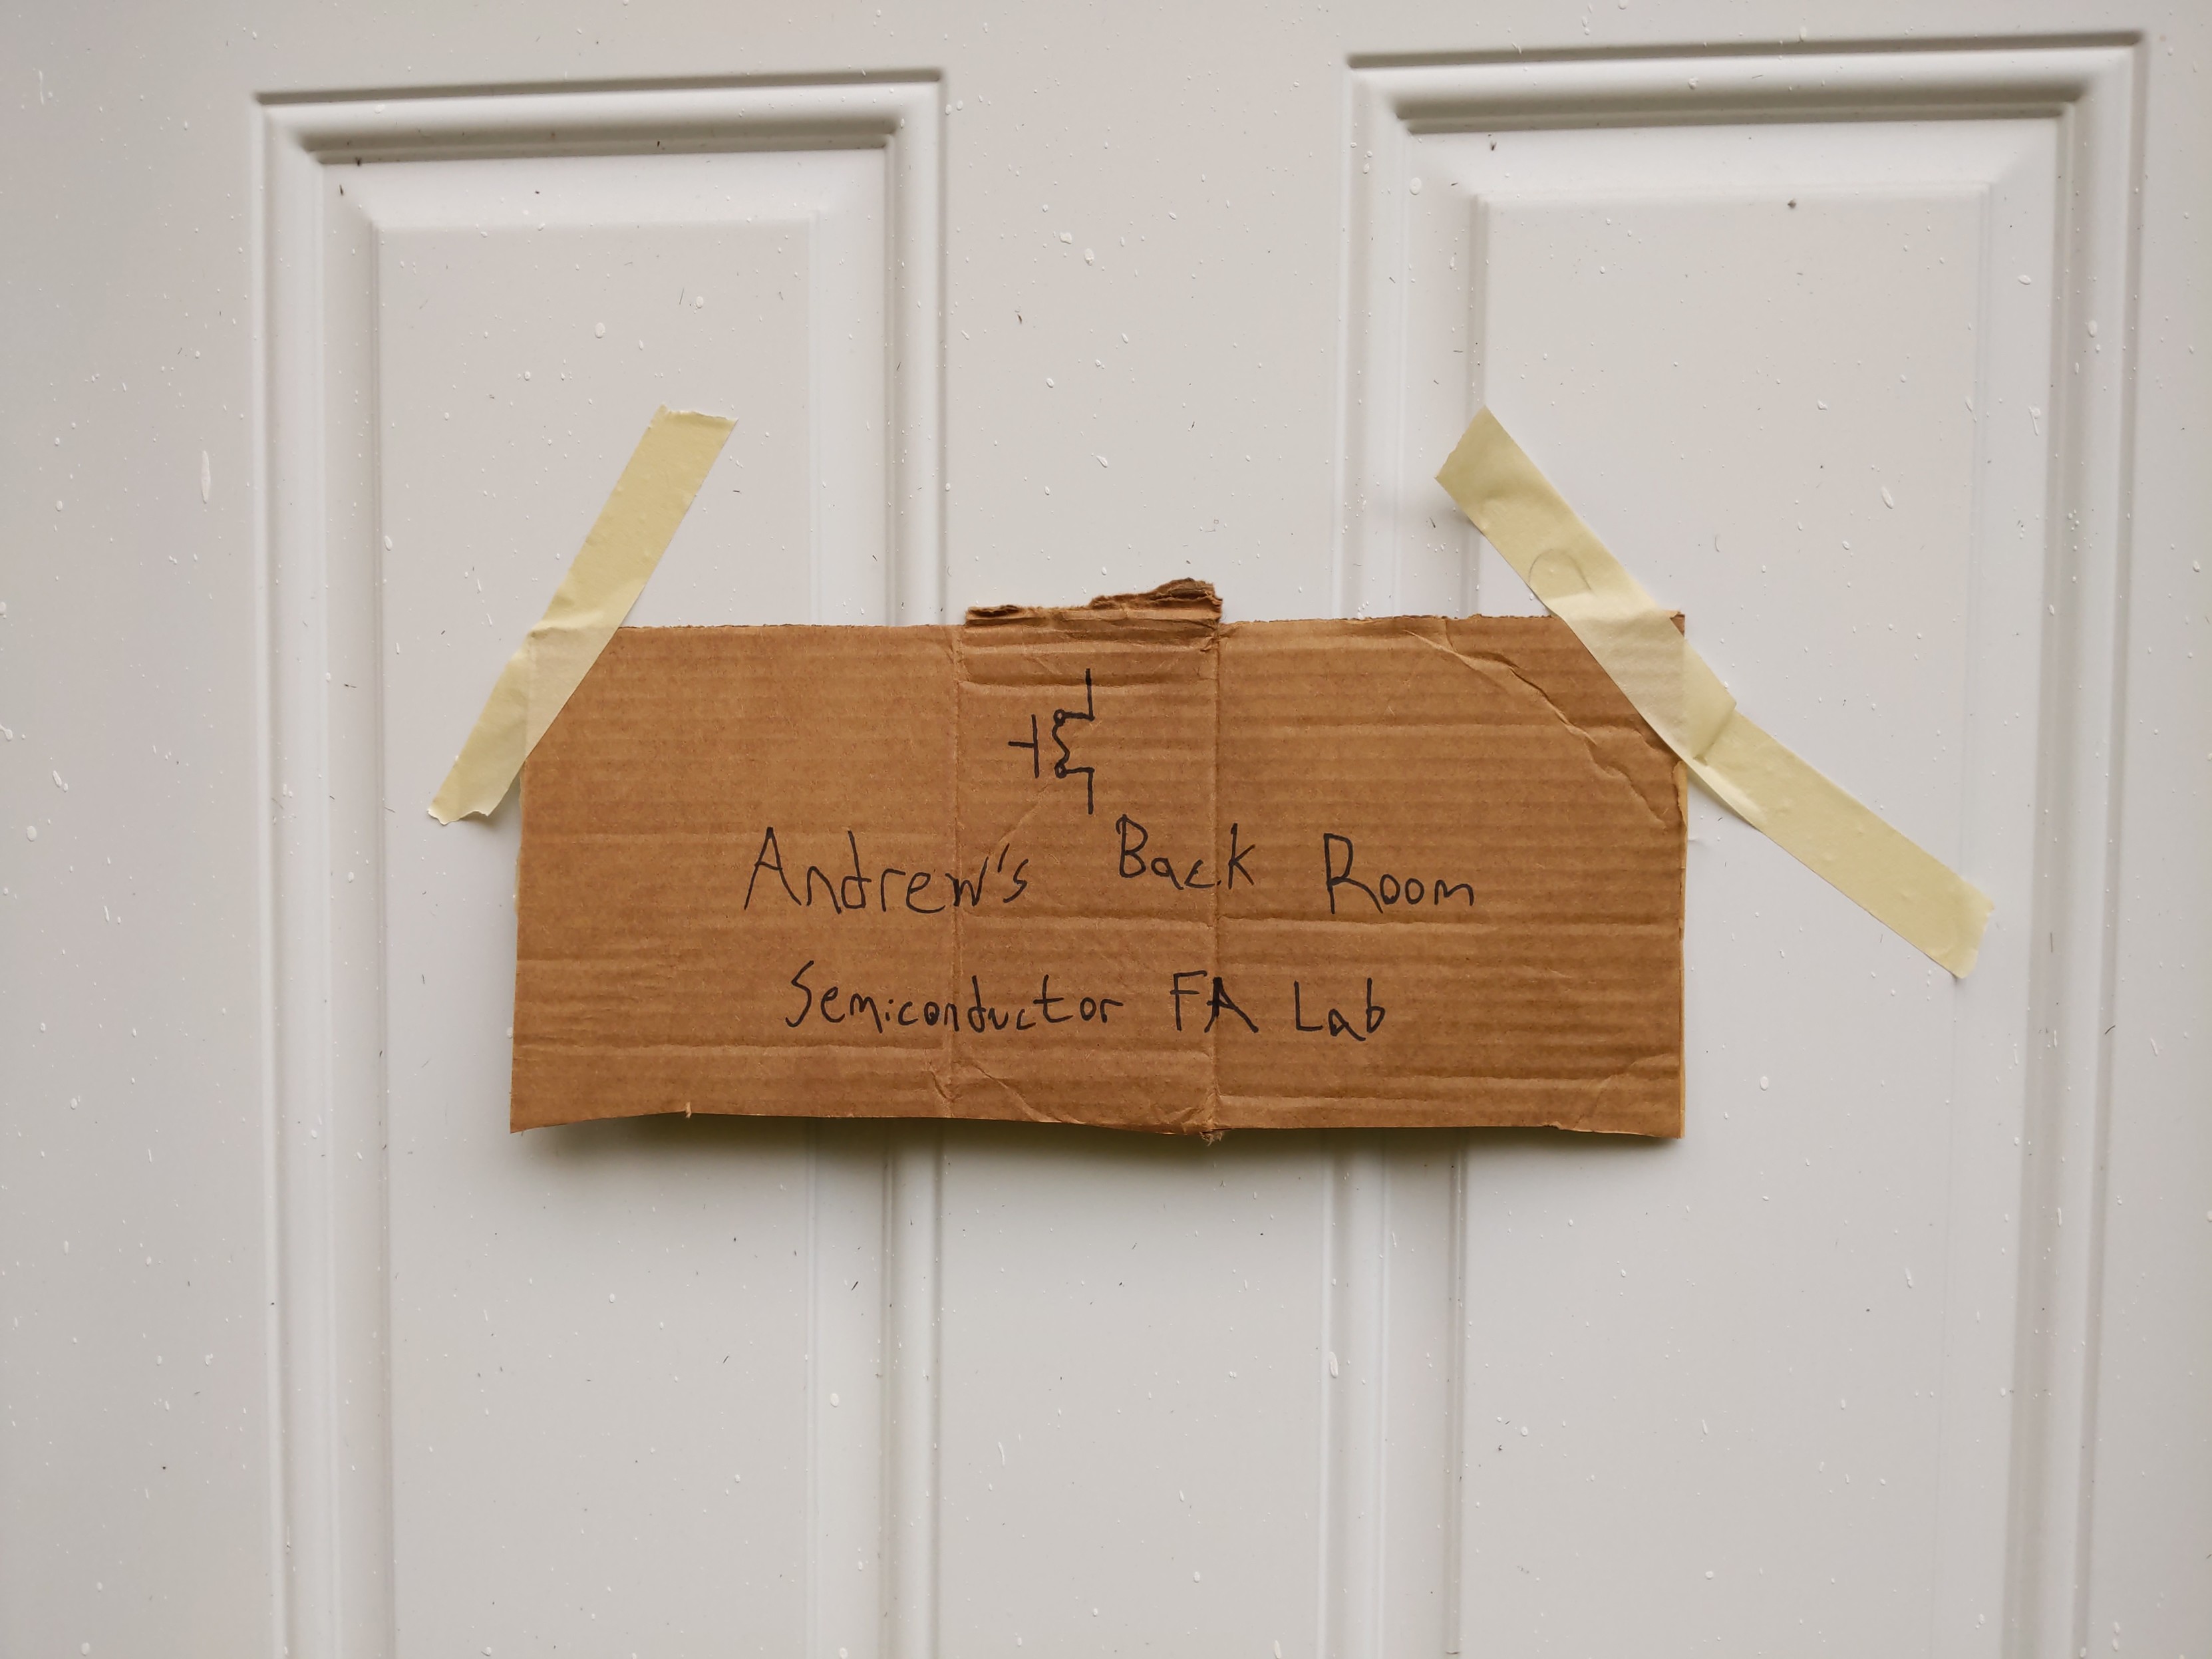 Andrew's Back Room
Semiconductor FA Lab